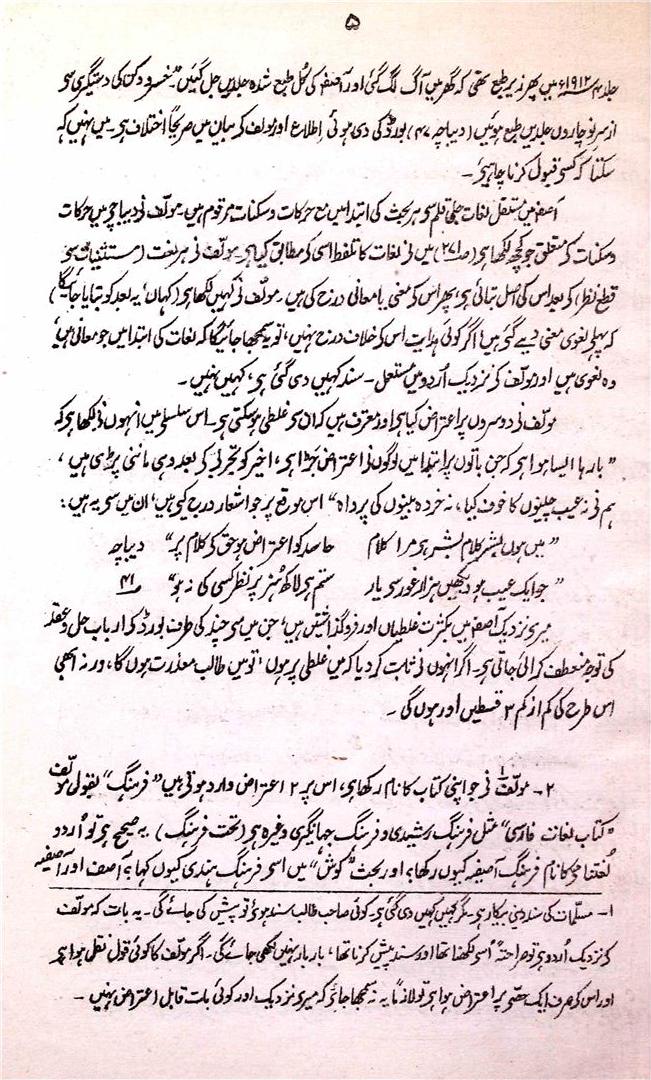 ۵
جلد ۴ ۱۹۱۲ء میں پھر زیر طبع تھی کہ گھر میں آگ لگ گئی اور آصفیہ کی کُل طبع شدہ جلدیں جل گئیں۔ خسرو دکن کی دستگیری سے
از سر نو چاروں جلدیں طبع ہوئیں (دیباچہ ۴۷) بورڈ کی دی ہوئی اطلاع اور مولف کے بیان میں صریحاً اختلاف ہے۔ میں نہیں کہہ
سکتا کہ کسے قبول کرنا چاہیے۔
آصفیہ میں مستقل لغات جلی قلم سے ہر بحث کی ابتدا میں مع حرکات و سکنات مرقوم ہیں۔ مولف نے دیباچے میں حرکات
و سکنات کے متعلق جو کچھ لکھا ہے (صـ ۲۷۱) میں نے لغات کا تلفظ اسی کے مطابق کیا ہے۔ مولف نے ہر لغت (مستثنیات سے
قطع نظر) کے بعد اس کی اصل بتائی ہے، پھر اس کے معنی یا معانی درج کیے ہیں۔ مولف نے کہیں لکھا ہے (کہاں، یہ بعد کو بتایا جائیگا)
کہ پہلے لغوی معنی دیے گئے ہیں، اگر کوئی ہدایت اس کے خلاف درج نہیں، تو یہ سمجھا جائیگا کہ لغات کی ابتدا میں جو معانی ہیں،
وہ لغوی ہیں اور مولف کے نزدیک اُردو میں مستعمل۔ سند کہیں دی گئی ہے، کہیں نہیں۔
مولف نے دوسروں پر اعتراض کیا ہے اور معترف ہیں کہ ان سے غلطی ہو سکتی ہے۔ اس سلسلے میں انہوں نے لکھا ہے کہ
”بارہا ایسا ہوا ہے کہ جن باتوں پر ابتدا میں لوگوں نے اعتراض جڑا ہے، اخیر کو تجربے کے بعد وہی ماننی پڑی ہیں،
ہم نے نہ عیب چینوں کا خوف کیا، نہ خردہ بینوں کی پرواہ“ اس موقع پر جو اشعار درج کیے ہیں، ان میں سے یہ ہیں:
”میں ہوں بشر کلامِ بشر ہے مرا کلام حاسد کو اعتراض ہو حق کے کلام پر“ دیباچہ
”جو ایک عیب ہو دیکھیں ہزار غور سے یار ستم ہے لاکھ ہنر پر نظر کسی کی نہ ہو“ صـ ۴۱
میرے نزدیک آصفیہ میں بکثرت غلطیاں اور فروگذاشتیں ہیں، جن میں سے چند کی طرف بورڈ کے اربابِ حل و عقد
کی توجہ منعطف کرائی جاتی ہے۔ اگر انہوں نے ثابت کر دیا کہ میں غلطی پر ہوں، تو میں طالبِ معذرت ہوں گا، ورنہ ابھی
اس طرح کی کم از کم ۳ قسطیں اور ہوں گی۔
۲۔ مولف نے جو اپنی کتاب کا نام رکھا ہے، اس پر ۲ اعتراض وارد ہوتے ہیں ”فرہنگ“ بقول مولف
”کتاب لغات فارسی“ مثل فرہنگ رشیدی و فرہنگ جہانگیری وغیرہ ہے (تحت فرہنگ) یہ صحیح ہے تو اُردو
لُغتنامے کا نام فرہنگ آصفیہ کیوں رکھا؟ اور بحث ”کوش“ میں اسے فرہنگ ہندی کیوں کہا؟ آصف اور آصفیہ
۱۔ مسلّمات کی سند دینی بیکار ہے۔ مگر کہیں کہیں دی گئی ہے۔ کوئی صاحب طالب سند ہوئے تو پیش کی جائے گی۔ یہ بات کہ مولف
کے نزدیک اُردو ہے تو صراحتہً اُسے لکھنا تھا اور سند پیش کرنا تھا، بار بار نہیں لکھی جائے گی۔ اگر مولف کا کوئی قول نقل ہوا ہے
اور اس کے صرف ایک حصے پر اعتراض ہوا ہے تو لازماً یہ نہ سمجھا جائے کہ میرے نزدیک اور کوئی بات قابلِ اعتراض نہیں۔